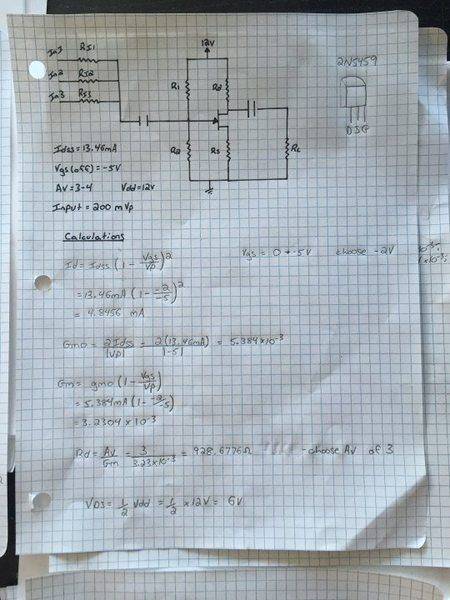 12V
In1 RI1
In2 RI2
In3 RI3
R1 Rd
R2 Rs RL
2N5459
DSG
Idss = 13.46mA
Vgs(off) = -5V
Av = 3-4 Vdd = 12V
Input = 200 mVp
Calculations
Id = Idss (1 - Vgs/Vp)²
Vgs = 0 → -5V choose -2V
= 13.46mA (1 - -2/-5)²
= 4.8456 mA
Gmo = 2Idss/|Vp| = 2(13.46mA)/|-5| = 5.384x10⁻³
Gm = gmo (1 - Vgs/Vp)
= 5.384mA (1 - -2/-5)
= 3.2304 x 10⁻³
Rd = Av/Gm = 3/3.23x10⁻³ = 928.6776Ω - choose Av of 3
VDS = 1/2 Vdd = 1/2 x 12V = 6V